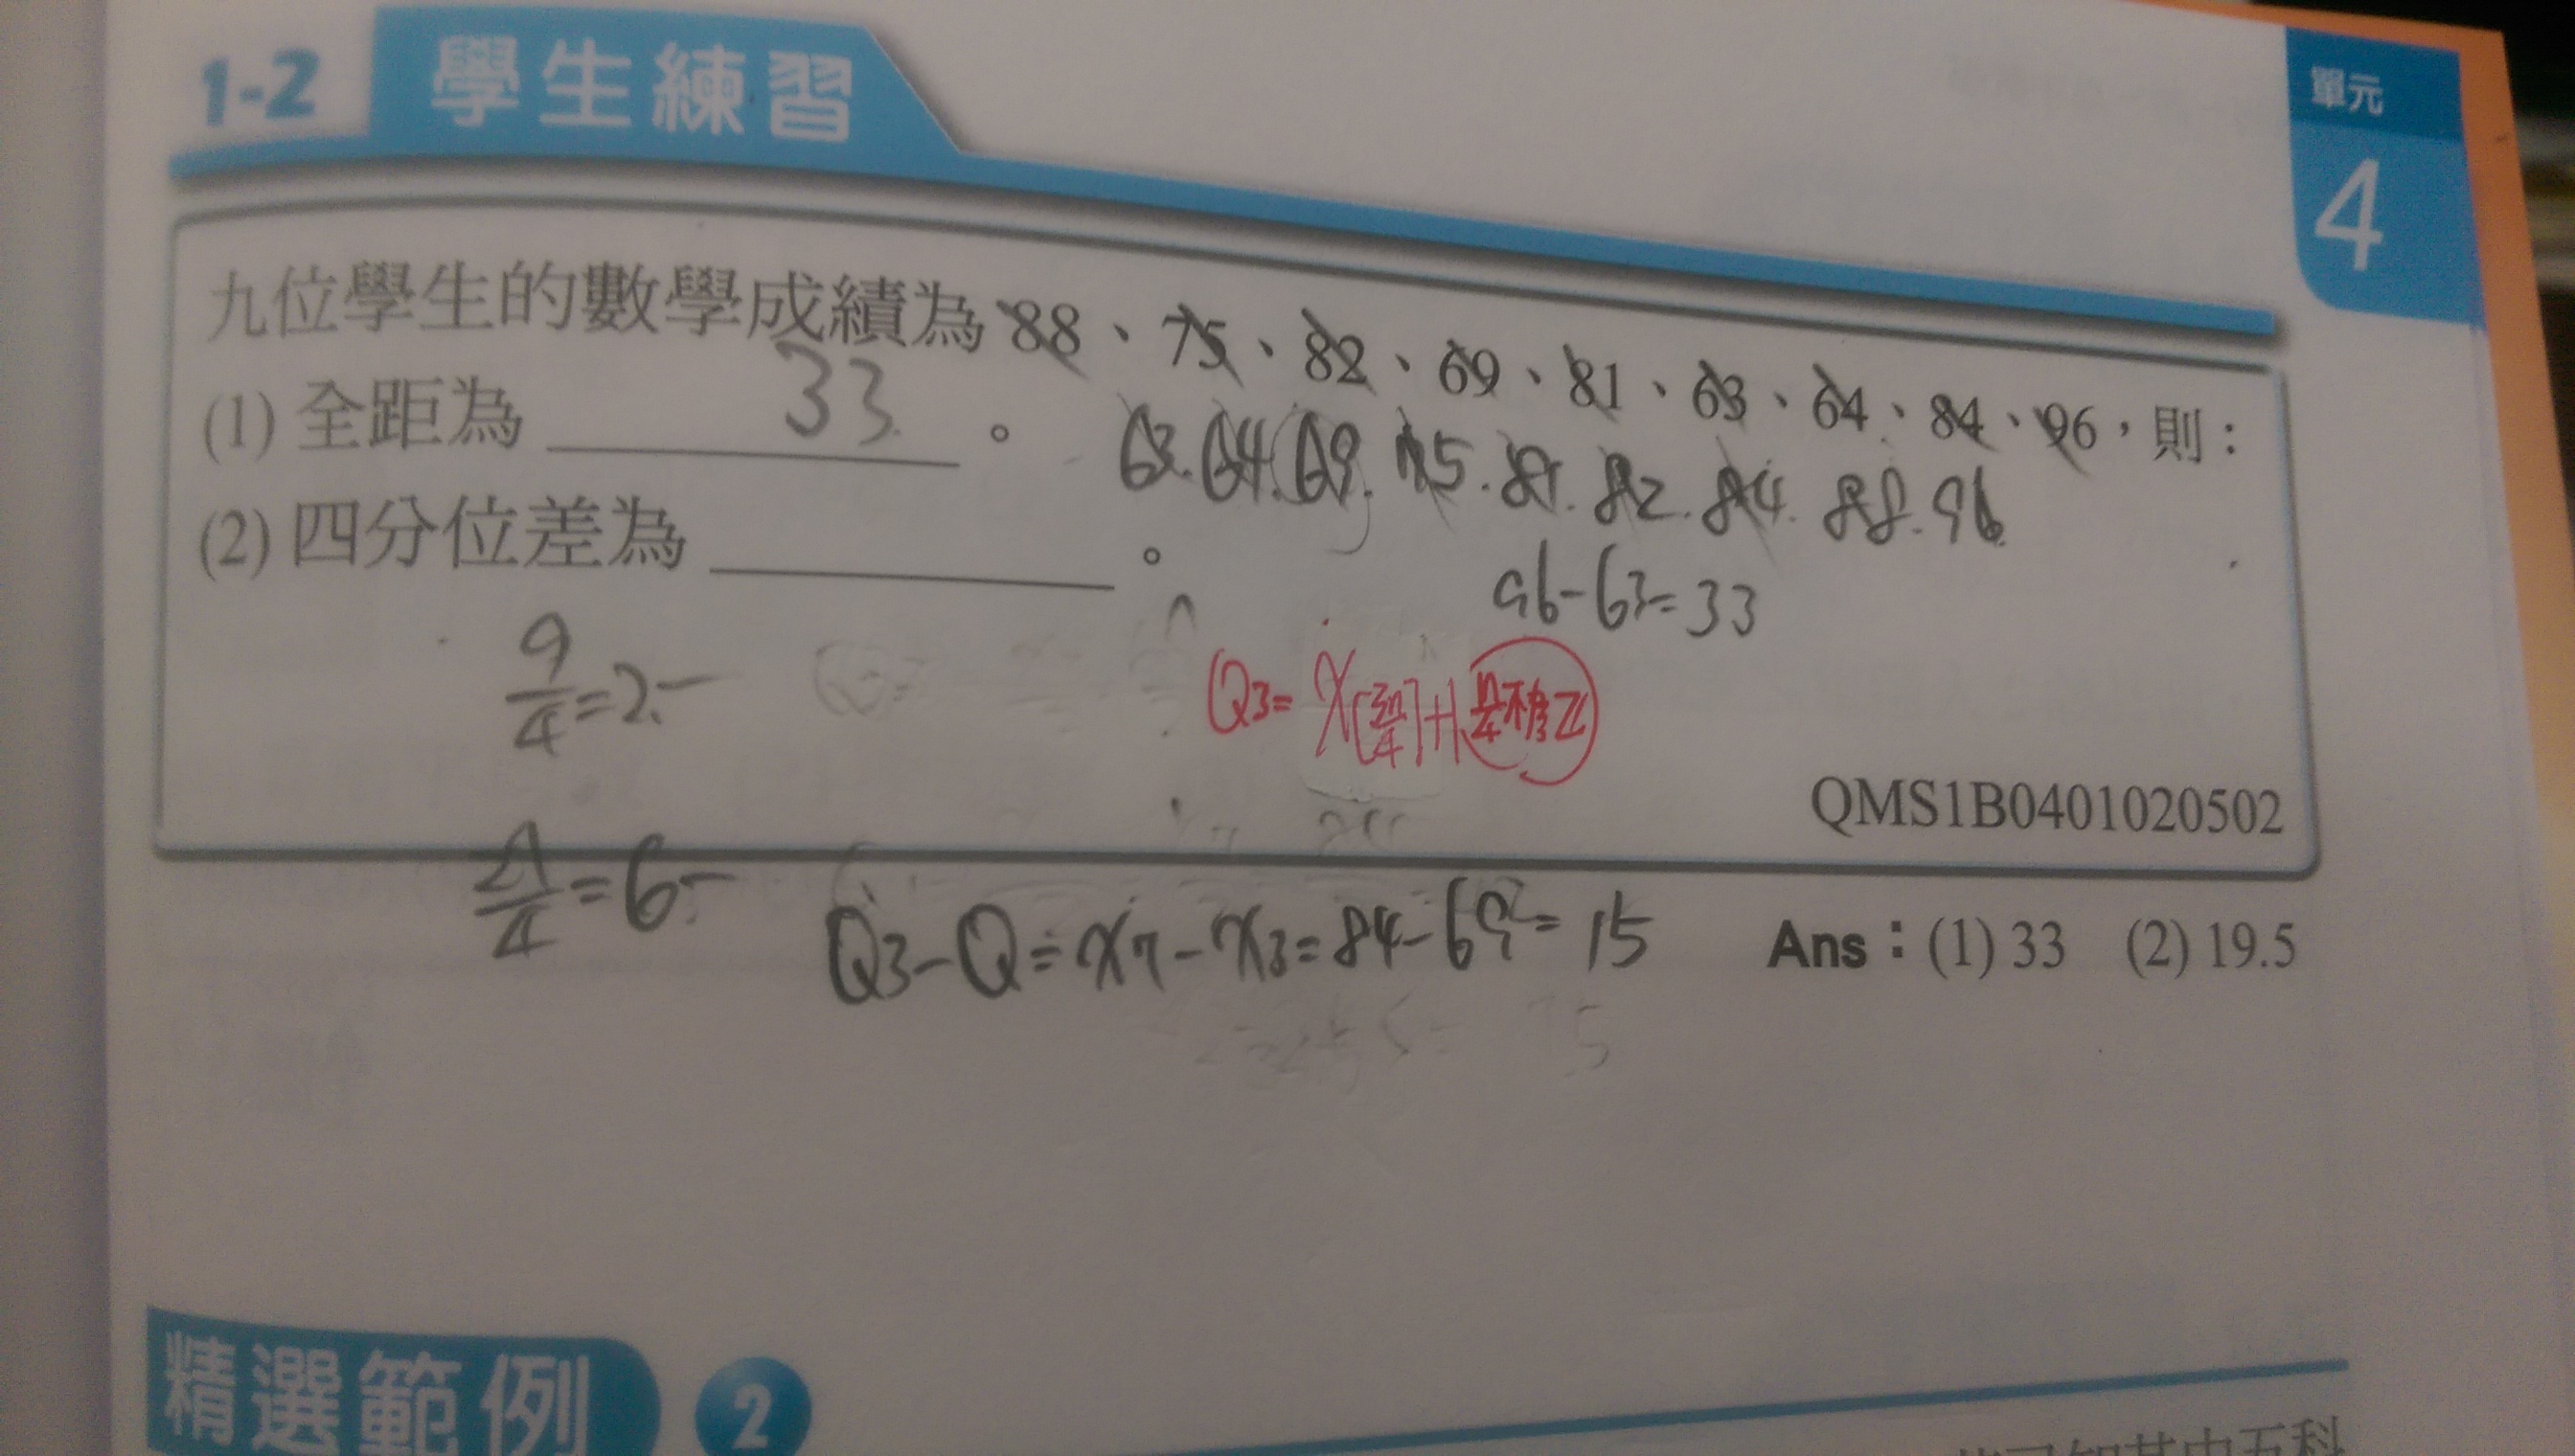 1-2 學生練習
單元
4
九位學生的數學成績為 88、75、82、69、81、63、64、84、96,則:
(1) 全距為 33 。
63.64.69.75.81.82.84.88.96
(2) 四分位差為 。
96-63=33
9/4=2.
Q3= X[3n/4]+1
QMS1B0401020502
27/4=6.
Q3-Q=X7-X3=84-69=15
Ans:(1) 33 (2) 19.5
精選範例 2